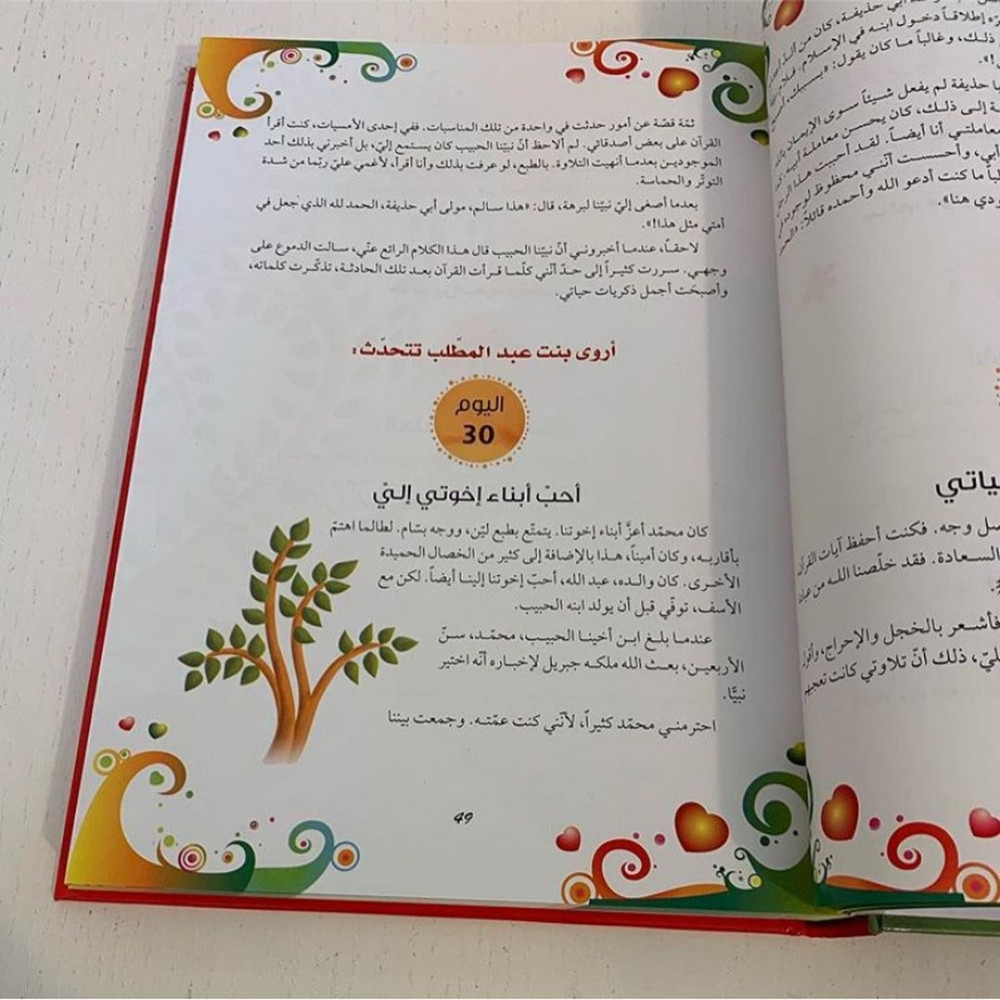 أبي حذيفة، كان من
إطلاقاً دخول ابنه في الإسلام. فلا
ذلك، وغالباً ما كان يقول: «بسببك،
حذيفة لم يفعل شيئاً سوى الإيمان
إلى ذلك، كان يحسن معاملة
معاملتي أنا أيضاً. لقد أحببت هذا الرجل
أبي، وأحسست أنّني محظوظ لوجوده في
ما كنت أدعو الله وأحمده قائلاً:
هنا».
وجه. فكنت أحفظ آيات القرآن
السعادة. فقد خلّصنا الله من
فأشعر بالخجل والإحراج،
ذلك أنّ تلاوتي كانت تعجبهم
ثمّة قصّة عن أمور حدثت في واحدة من تلك المناسبات. ففي إحدى الأمسيات، كنت أقرأ
القرآن على بعض أصدقائي. لم ألاحظ أنّ نبيّنا الحبيب كان يستمع إليّ، بل أخبرني بذلك أحد
الموجودين بعدما أنهيت التلاوة. بالطبع، لو عرفت بذلك وأنا أقرأ، لأغمي عليّ ربّما من شدة
التوتّر والحماسة.
بعدما أصغى إليّ نبيّنا لبرهة، قال: «هذا سالم، مولى أبي حذيفة، الحمد لله الذي جعل في
أمتي مثل هذا!».
لاحقاً، عندما أخبروني أنّ نبيّنا الحبيب قال هذا الكلام الرائع عنّي، سالت الدموع على
وجهي. سررت كثيراً إلى حدّ أنّني كلّما قرأت القرآن بعد تلك الحادثة، تذكّرت كلماته،
وأصبحَت أجمل ذكريات حياتي.
أروى بنت عبد المطّلب تتحدّث:
اليوم
30
أحبّ أبناء إخوتي إليّ
كان محمّد أعزَّ أبناء إخوتنا. يتمتّع بطبع ليّن، ووجه بسّام. لطالما اهتمّ
بأقاربه، وكان أميناً، هذا بالإضافة إلى كثير من الخصال الحميدة
الأخرى. كان والده، عبد الله، أحبّ إخوتنا إلينا أيضاً. لكن مع
الأسف، توفّي قبل أن يولد ابنه الحبيب.
عندما بلغ ابن أخينا الحبيب، محمّد، سنّ
الأربعين، بعث الله ملكه جبريل لإخباره أنّه اختير
نبيًّا.
احترمني محمّد كثيراً، لأنّني كنت عمّته. وجمعت بيننا
49